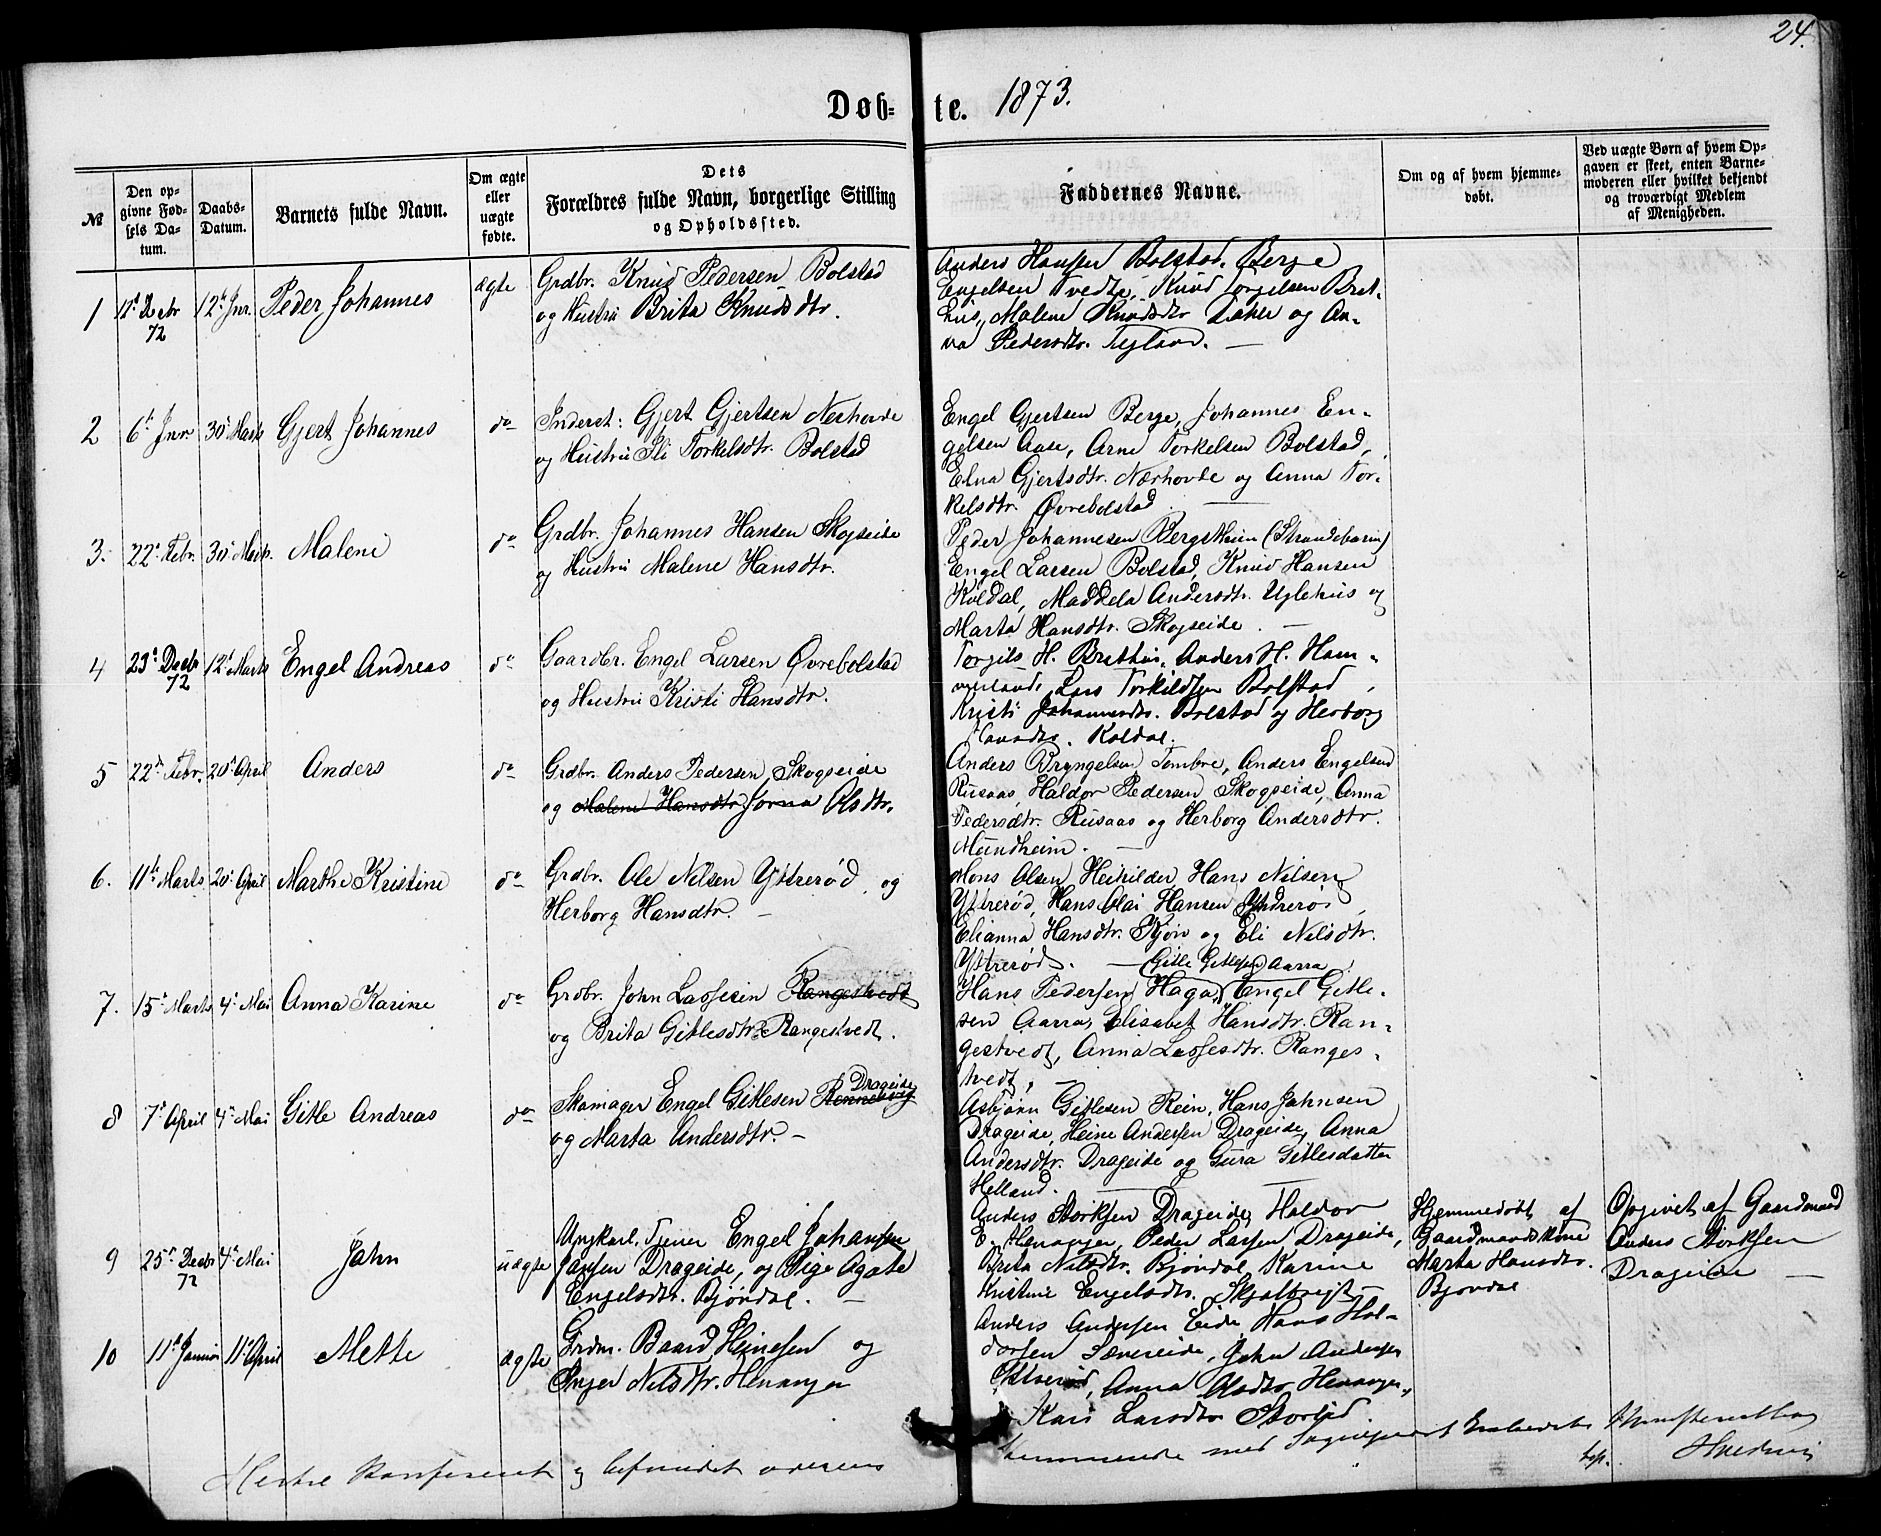 24.
Døb- te. 1873.
№
Den opgivne Fødsels Datum.
Daabs-Datum.
Barnets fulde Navn.
Om ægte eller uægte fødte.
Dets Forældres fulde Navn, borgerlige Stilling og Opholdssted.
Faddernes Navne.
Om og af hvem hjemmedøbt.
Ved uægte Børn af hvem Opgaven er skeet, enten Barnemoderen eller hvilket bekjendt og troværdigt Medlem af Menigheden.
1 12t Decbr 72 12t Jnr. Peder Johannes ægte
Grdbr. Knud Pedersen Bolstad
og Hustru Brita Knudsdtr.
Anders Hansen Bolstad, Berge
Engelsen Tvedte, Knud Torgilsen Bret-
hus, Malene Knudsdtr. og An-
na Pedersdtr. Tegland. —
2 6t Jnr. 30t Marts Gjert Johannes do
Inderst: Gjert Gjertsen Nerhovde
og Hustru Eli Torkelsdtr. Bolstad
Engel Gjertsen Berge, Johannes En-
gelsen Aase, Arne Torkelsen Bolstad,
Elna Gjertsdtr. Nærhovde og Anna Tor-
kelsdtr. Øvrebolstad —
3. 22d Febr. 30t Marts. Maleni do
Grdbr. Johannes Hansen Skogseide
og Hustru Malene Hansdtr.
Peder Johannesen Bergsheim (Strandebarm)
Engel Larsen Bolstad, Knud Hansen
Koldal, Maddela Andersdtr. Uglehus og
Marta Hansdtr. Skogseide. —
4 23d Decbr 72 12t Marts Engel Andreas do
Gaardbr. Engel Larsen Øvrebolstad
og Hustru Kristi Hansdtr.
Torgils H. Brethus, Anders H. Ham-
merland, Lars Torkildsen Bolstad,
Kristi Johannesdtr. Bolstad og Herborg
Koldal.
5 22d Febr. 20d April Anders do
Grdbr. Anders Pedersen Skogseide
og Malene Hansdtr Jorna Olsdtr.
Anders Bryngelsen Tombre, Anders Engelsen
Rusaas, Haldor Pedersen Skogseide, Anna
Pedersdtr. Rusaas og Herborg Andersdtr.
Mundheim. —
6. 11te Marts 20d April Marthe Kristine do
Grdbr. Ole Nilsen Ystrerød og
Herborg Hansdtr. —
Mons Olsen Heikilder Hans Nilsen
Ystrerød, Hans Olai Hansen Yndrerød,
Elianna Hansdtr. og Eli Nilsdtr.
Ystrerød. — (Gitle Gitlesen Aarra)
7. 15d Marts 4d Mai Anna Karine do
Grdbr. John Lassesen Rangestvedt
og Brita Gitlesdtr. Rangestvedt.
Hans Pedersen Haga, Engel Gitle-
sen Aarra, Elisabet Hansdtr. Ran-
gestvedt, Anna Lassesdtr. Ranges-
tvedt, —
8 7d April 4d Mai Gitle Andreas do
Drageide
Skomager Engel Gitlesen
og Marta Andersdtr. —
Asbjørn Gitlesen Rein, Hans Johnsen
Drageide, Heine Andersen Drageide, Anna
Andersdtr. Drageide og Gura Gitlesdatter
Helland. —
9 25d Decbr 72 4d Mai Jahn uægte
Ungkarl. Tjener Engel Johansen
Jansen Drageide, og Pige Agate
Engelsdtr. Bjøndal. —
Anders Storksen Drageide, Haldor
E. Henanger, Peder Larsen Drageide,
Brita Nilsdtr. Bjøndal, Karine
Kristine Engelsdtr. Skjolbreigt —
Hjemmedøbt af
Gaardmandskone
Marta Hansdtr.
Bjøndal
Opgivet af Gaardmand
Anders Storksen
Drageide —
10 11te Januar 11te April Mette ægte
Grdm. Baard Heinesen og
Inger Nilsdtr. Henanger
Anders Andersen Eide Hans Hal-
dorsen Sævereide, John Andersen
Anna Olsdtr Henanger,
Kari Larsdtr
Hertil konfereret og befundet overens
stemmende med